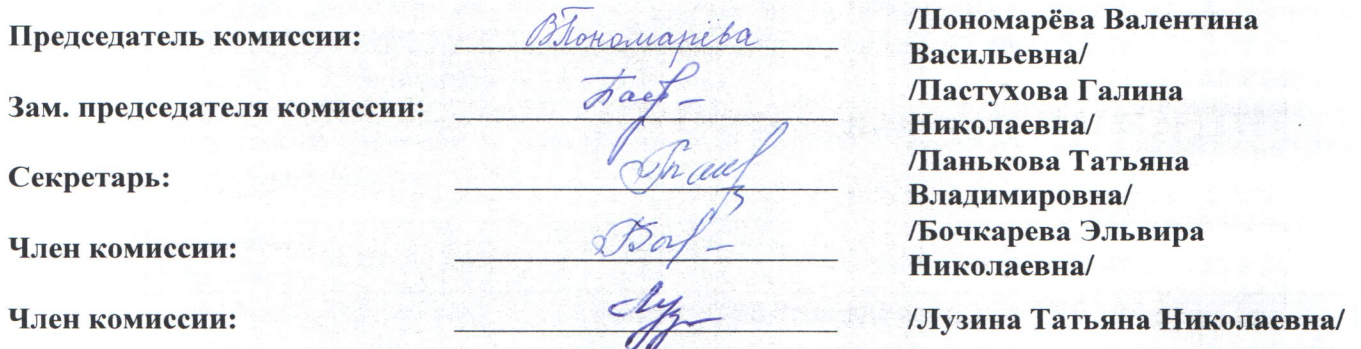 Председатель комиссии: ВПономарёва /Пономарёва Валентина
Васильевна/
Зам. председателя комиссии: /Пастухова Галина
Николаевна/
Секретарь: /Панькова Татьяна
Владимировна/
Член комиссии: /Бочкарева Эльвира
Николаевна/
Член комиссии: /Лузина Татьяна Николаевна/